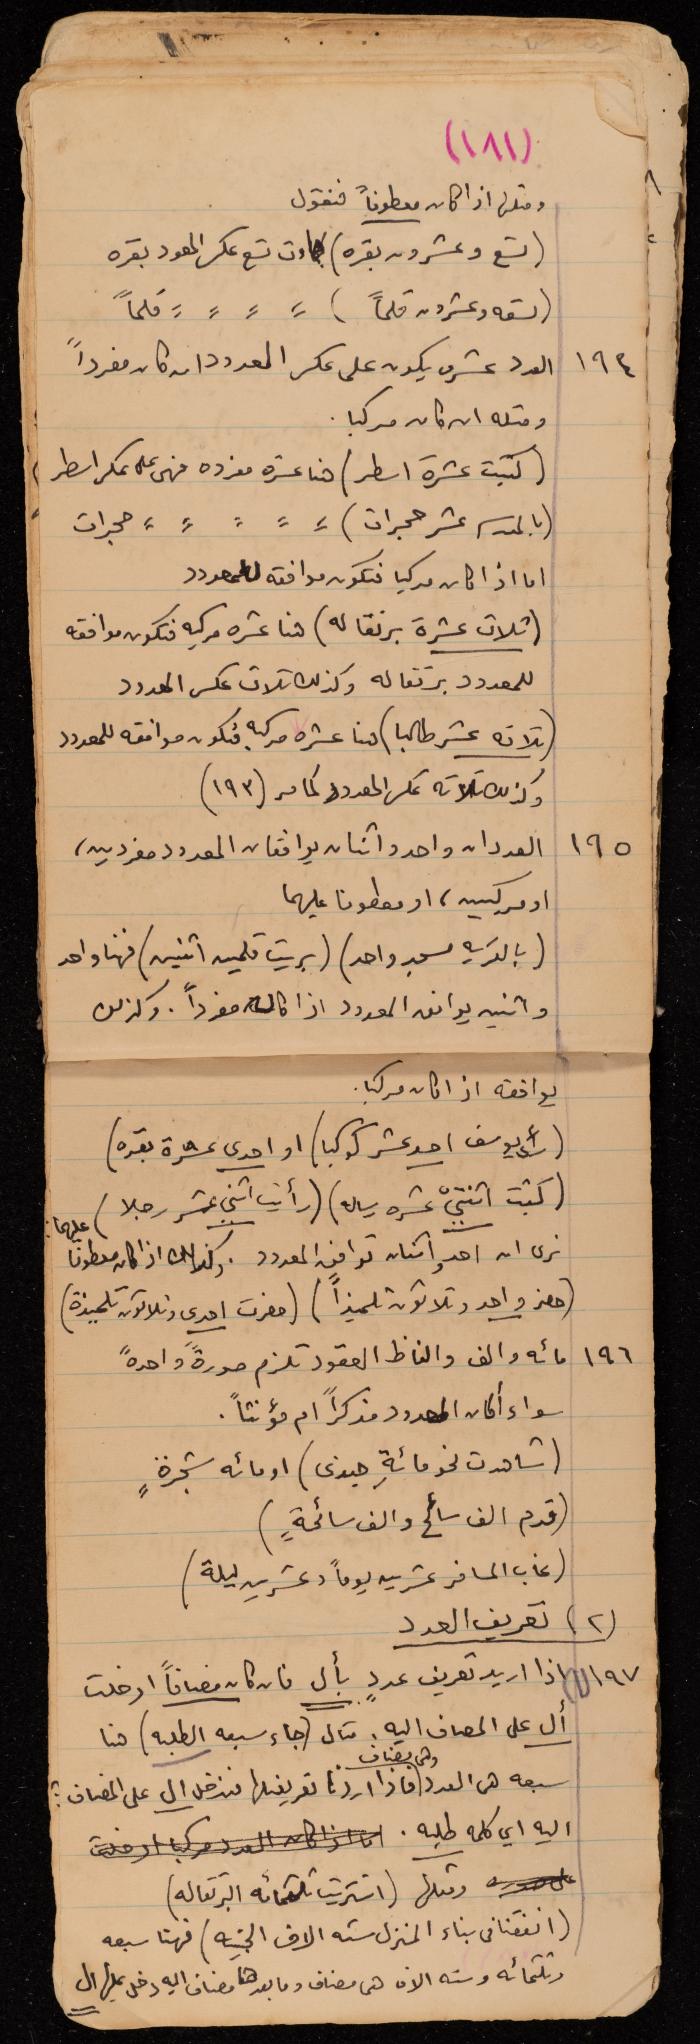 (١٨١)
ومثلها اذا كان معطوفاً فنقول
(تسع وعشرون بقره) جاءت تسع عكس المعدود بقره
(تسعه وعشرون قلماً) = = = = قلماً
١٩٤ العدد عشره يكون على عكس المعدود ان كان مفرداً
ومثله ان كان مركبا.
(كتبت عشرة اسطر) هنا عشره مفرده فهى على عكس اسطر
(بالمدرسه عشر حجرات) = = = = = حجرات
اما اذا كان مركبا فتكون موافقه للمعدود
(ثلاث عشرة برتقاله) هنا عشره مركبه فتكون موافقه
للمعدود برتقاله وكذلك ثلاث عكس المعدود
(ثلاثه عشر طالبا) هنا عشره مركبه فتكون موافقه للمعدود
وكذلك ثلاثه عكس المعدود كما مر (١٩٣)
١٩٥ العددان واحد واثنان يوافقان المعدود مفردين،
او مركبين، او معطوفا عليهما
(بالقريه مسجد واحد) (بريت قلمين اثنين) فهنا واحد
واثنين يوافق المعدود اذا كان مفرداً. وكذلك
يوافقه اذا كان مركبا.
(رأى يوسف احد عشر كوكبا) او احدى عشرة بقره)
(كتبت اثنتيْ عشره رساله) (رأيت اثني عشر رجلا)
نرى ان احد واثنان توافق المعدود. وكذلك اذا كان معطوفا عليهما:
(حضر واحد وثلاثون تلميذاً) (حضرت احدى وثلاثون تلميذة)
١٩٦ مائه والف والفاظ العقود تلزم صورةً واحدهً
سواء أكان المعدود مذكراً ام مؤنثاً.
(شاهدت نحو مائةِ جندى) او مائه شجرةٍ
(قدم الف سائح والف سائحةٍ)
(غاب المسافر عشرين يوماً وعشرين ليلة)
(٢) تعريف العدد
١٩٧ اذا اريد تعريف عددٍ بأل فان كان مضافاً ادخلت
أل على المضاف اليه. مثال (جاء سبعه الطلبه) هنا
سبعه هى العدد وهى مضاف فاذا اردنا تعريفها فندخل ال على المضاف
اليه اي كلمه طلبه. اما اذا كان العدد مركبا ادخلت
على صدره ومثلها (اشتريت ثلثمائه البرتقاله)
(انفقنا فى بناء المنزل سته الاف الجنيه) فهنا سبعه
وثلثمائه وسته الاف هى مضاف وما بعدها مضاف اليه دخل عليها ال